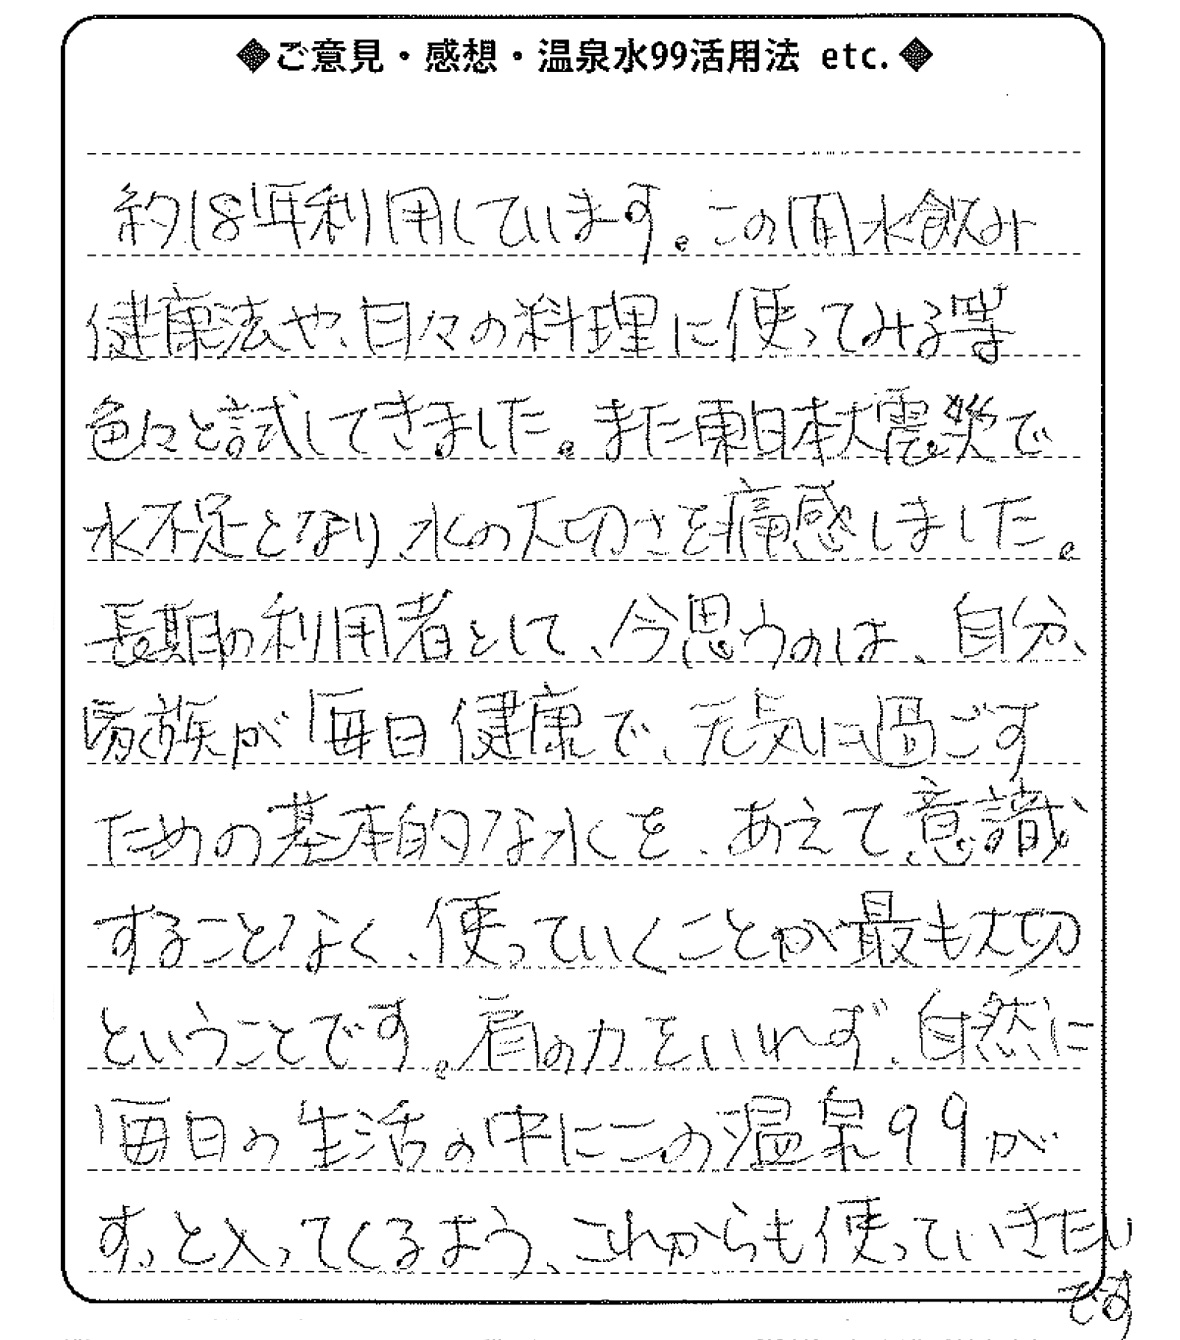 ◆ご意見・感想・温泉水99活用法 etc.◆
約18年利用しています。この間水飲み
健康法や、日々の料理に使ってみる等
色々と試してきました。また東日本大震災で
水不足となり、水の大切さを痛感しました。
長期の利用者として、今思うのは、自分、
家族が毎日健康で、元気に過ごす
ための基本的な水を、あえて意識
することなく、使っていくことが最も大切
ということです。肩の力をいれず、自然に
毎日の生活の中にこの温泉99が
すっと入ってくるよう、これからも使っていきたい
です